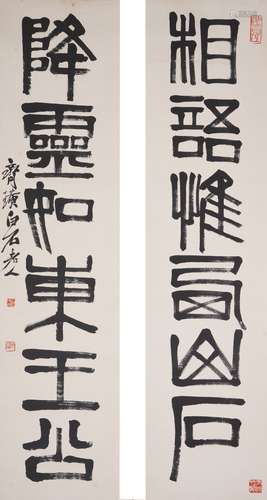 相語惟山石
降靈如東王公
齊璜白石老人